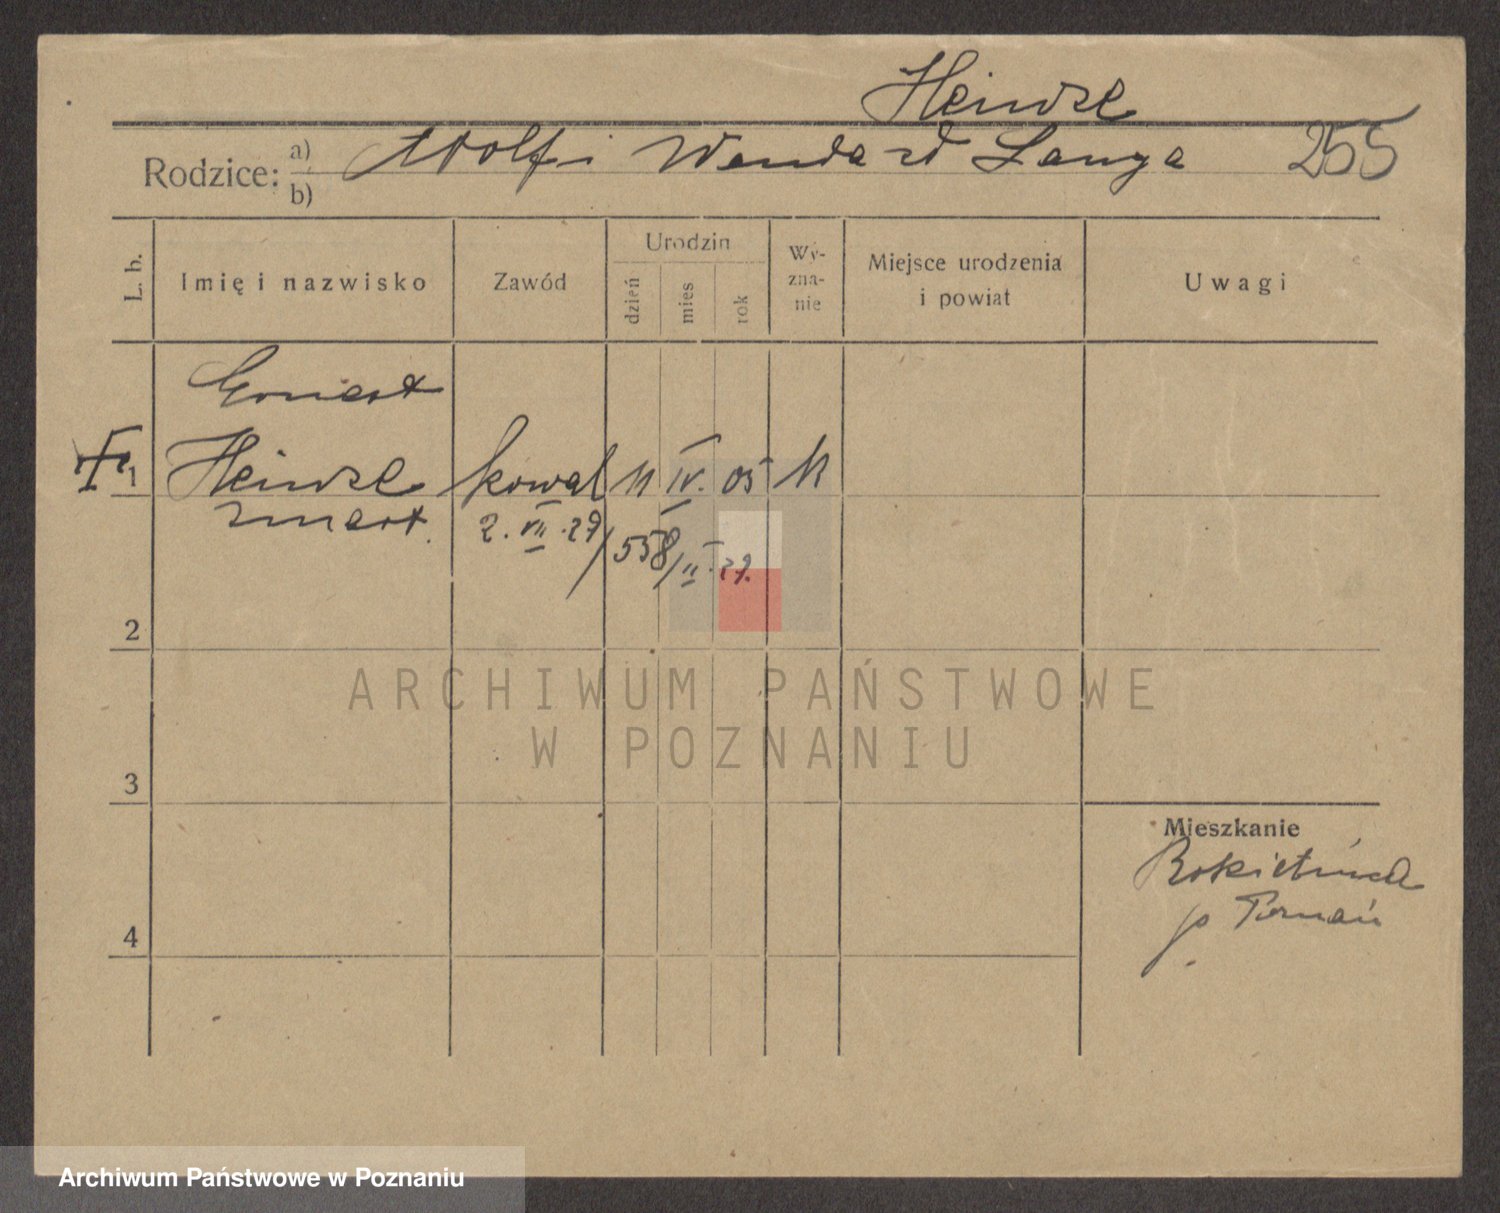 Heinze
Rodzice: a) Adolf i Wanda zd Langa 255
b)
L. b. Imię i nazwisko Zawód Urodzin dzień mies rok Wy-zna-nie Miejsce urodzenia i powiat Uwagi
Ernest
1 Heinze kowal 11 IV. 05
zmart. 2. VII. 29 / 558/II. 29.
2
ARCHIWUM PAŃSTWOWE
W POZNANIU
3
Mieszkanie
Rokietnica
p Poznań
4
Archiwum Państwowe w Poznaniu